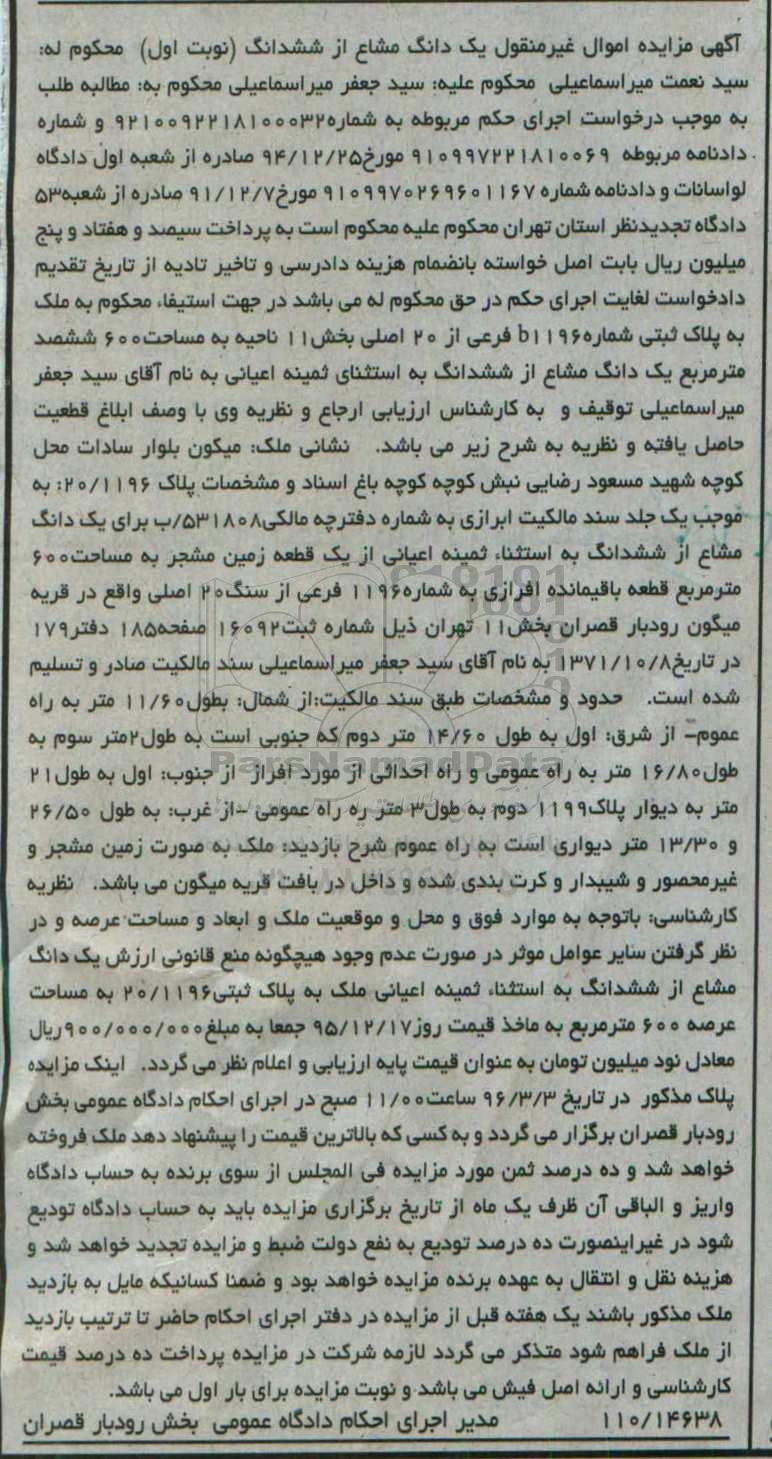 آگهی مزایده اموال غیرمنقول یک دانگ مشاع از ششدانگ (نوبت اول) محکوم له:
سید نعمت میراسماعیلی محکوم علیه: سید جعفر میراسماعیلی محکوم به: مطالبه طلب
به موجب درخواست اجرای حکم مربوطه به شماره۹۲۱۰۰۹۲۲۱۸۱۰۰۰۳۲ و شماره
دادنامه مربوطه ۹۱۰۹۹۷۲۲۱۸۱۰۰۶۹ مورخ۹۴/۱۲/۲۵ صادره از شعبه اول دادگاه
لواسانات و دادنامه شماره ۹۱۰۹۹۷۰۲۶۹۶۰۱۱۶۷ مورخ۹۱/۱۲/۷ صادره از شعبه۵۳
دادگاه تجدیدنظر استان تهران محکوم علیه محکوم است به پرداخت سیصد و هفتاد و پنج
میلیون ریال بابت اصل خواسته بانضمام هزینه دادرسی و تاخیر تادیه از تاریخ تقدیم
دادخواست لغایت اجرای حکم در حق محکوم له می باشد در جهت استیفاء محکوم به ملک
به پلاک ثبتی شماره۱۱۹۶b فرعی از ۲۰ اصلی بخش۱۱ ناحیه به مساحت۶۰۰ ششصد
مترمربع یک دانگ مشاع از ششدانگ به استثنای ثمینه اعیانی به نام آقای سید جعفر
میراسماعیلی توقیف و به کارشناس ارزیابی ارجاع و نظریه وی با وصف ابلاغ قطعیت
حاصل یافته و نظریه به شرح زیر می باشد. نشانی ملک: میگون بلوار سادات محل
کوچه شهید مسعود رضایی نبش کوچه کوچه باغ اسناد و مشخصات پلاک ۲۰/۱۱۹۶: به
موجب یک جلد سند مالکیت ابرازی به شماره دفترچه مالکی۵۳۱۸۰۸/ب برای یک دانگ
مشاع از ششدانگ به استثناء ثمینه اعیانی از یک قطعه زمین مشجر به مساحت۶۰۰
مترمربع قطعه باقیمانده افرازی به شماره۱۱۹۶ فرعی از سنگ۲۰ اصلی واقع در قریه
میگون رودبار قصران بخش۱۱ تهران ذیل شماره ثبت۱۶۰۹۲ صفحه۱۸۵ دفتر۱۷۹
در تاریخ۱۳۷۱/۱۰/۸ به نام آقای سید جعفر میراسماعیلی سند مالکیت صادر و تسلیم
شده است. حدود و مشخصات طبق سند مالکیت:از شمال: بطول۱۱/۶۰ متر به راه
عموم- از شرق: اول به طول ۱۴/۶۰ متر دوم که جنوبی است به طول۲متر سوم به
طول۱۶/۸۰ متر به راه عمومی و راه احداثی از مورد افراز از جنوب: اول به طول۲۱
متر به دیوار پلاک۱۱۹۹ دوم به طول۳ متر ره راه عمومی -از غرب: به طول ۲۶/۵۰
و ۱۳/۳۰ متر دیواری است به راه عموم شرح بازدید: ملک به صورت زمین مشجر و
غیرمحصور و شیبدار و کرت بندی شده و داخل در بافت قریه میگون می باشد. نظریه
کارشناسی: باتوجه به موارد فوق و محل و موقعیت ملک و ابعاد و مساحت عرصه و در
نظر گرفتن سایر عوامل موثر در صورت عدم وجود هیچگونه منع قانونی ارزش یک دانگ
مشاع از ششدانگ به استثناء ثمینه اعیانی ملک به پلاک ثبتی۲۰/۱۱۹۶ به مساحت
عرصه ۶۰۰ مترمربع به ماخذ قیمت روز۹۵/۱۲/۱۷ جمعا به مبلغ۹۰۰/۰۰۰/۰۰۰ریال
معادل نود میلیون تومان به عنوان قیمت پایه ارزیابی و اعلام نظر می گردد. اینک مزایده
پلاک مذکور در تاریخ ۹۶/۳/۳ ساعت۱۱/۰۰ صبح در اجرای احکام دادگاه عمومی بخش
رودبار قصران برگزار می گردد و به کسی که بالاترین قیمت را پیشنهاد دهد ملک فروخته
خواهد شد و ده درصد ثمن مورد مزایده فی المجلس از سوی برنده به حساب دادگاه
واریز و الباقی آن ظرف یک ماه از تاریخ برگزاری مزایده باید به حساب دادگاه تودیع
شود در غیراینصورت ده درصد تودیع به نفع دولت ضبط و مزایده تجدید خواهد شد و
هزینه نقل و انتقال به عهده برنده مزایده خواهد بود و ضمنا کسانیکه مایل به بازدید
ملک مذکور باشند یک هفته قبل از مزایده در دفتر اجرای احکام حاضر تا ترتیب بازدید
از ملک فراهم شود متذکر می گردد لازمه شرکت در مزایده پرداخت ده درصد قیمت
کارشناسی و ارائه اصل فیش می باشد و نوبت مزایده برای بار اول می باشد.
۱۱۰/۱۴۶۳۸ مدیر اجرای احکام دادگاه عمومی بخش رودبار قصران
ParsNamadData